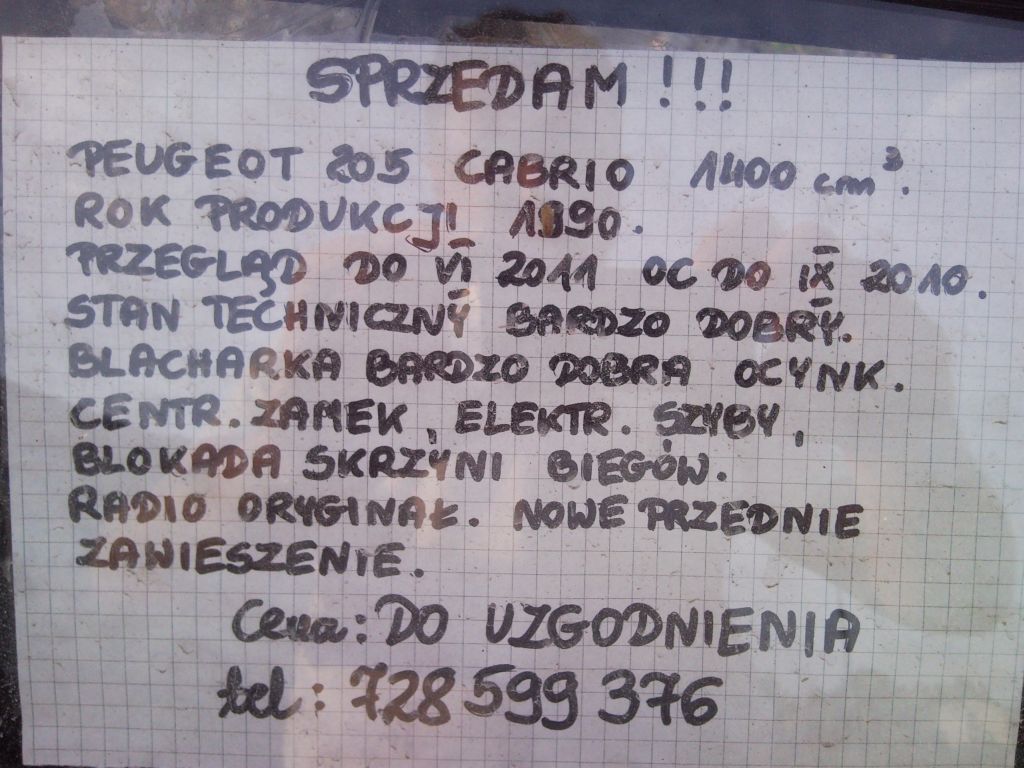 SPRZEDAM !!!
PEUGEOT 205 CABRIO 1400 cm³.
ROK PRODUKCJI 1990.
PRZEGLĄD DO VI 2011 OC DO IX 2010.
STAN TECHNICZNY BARDZO DOBRY.
BLACHARKA BARDZO DOBRA OCYNK.
CENTR. ZAMEK, ELEKTR. SZYBY,
BLOKADA SKRZYNI BIEGÓW.
RADIO ORYGINAŁ. NOWE PRZEDNIE
ZAWIESZENIE.
Cena: DO UZGODNIENIA
tel: 728 599 376